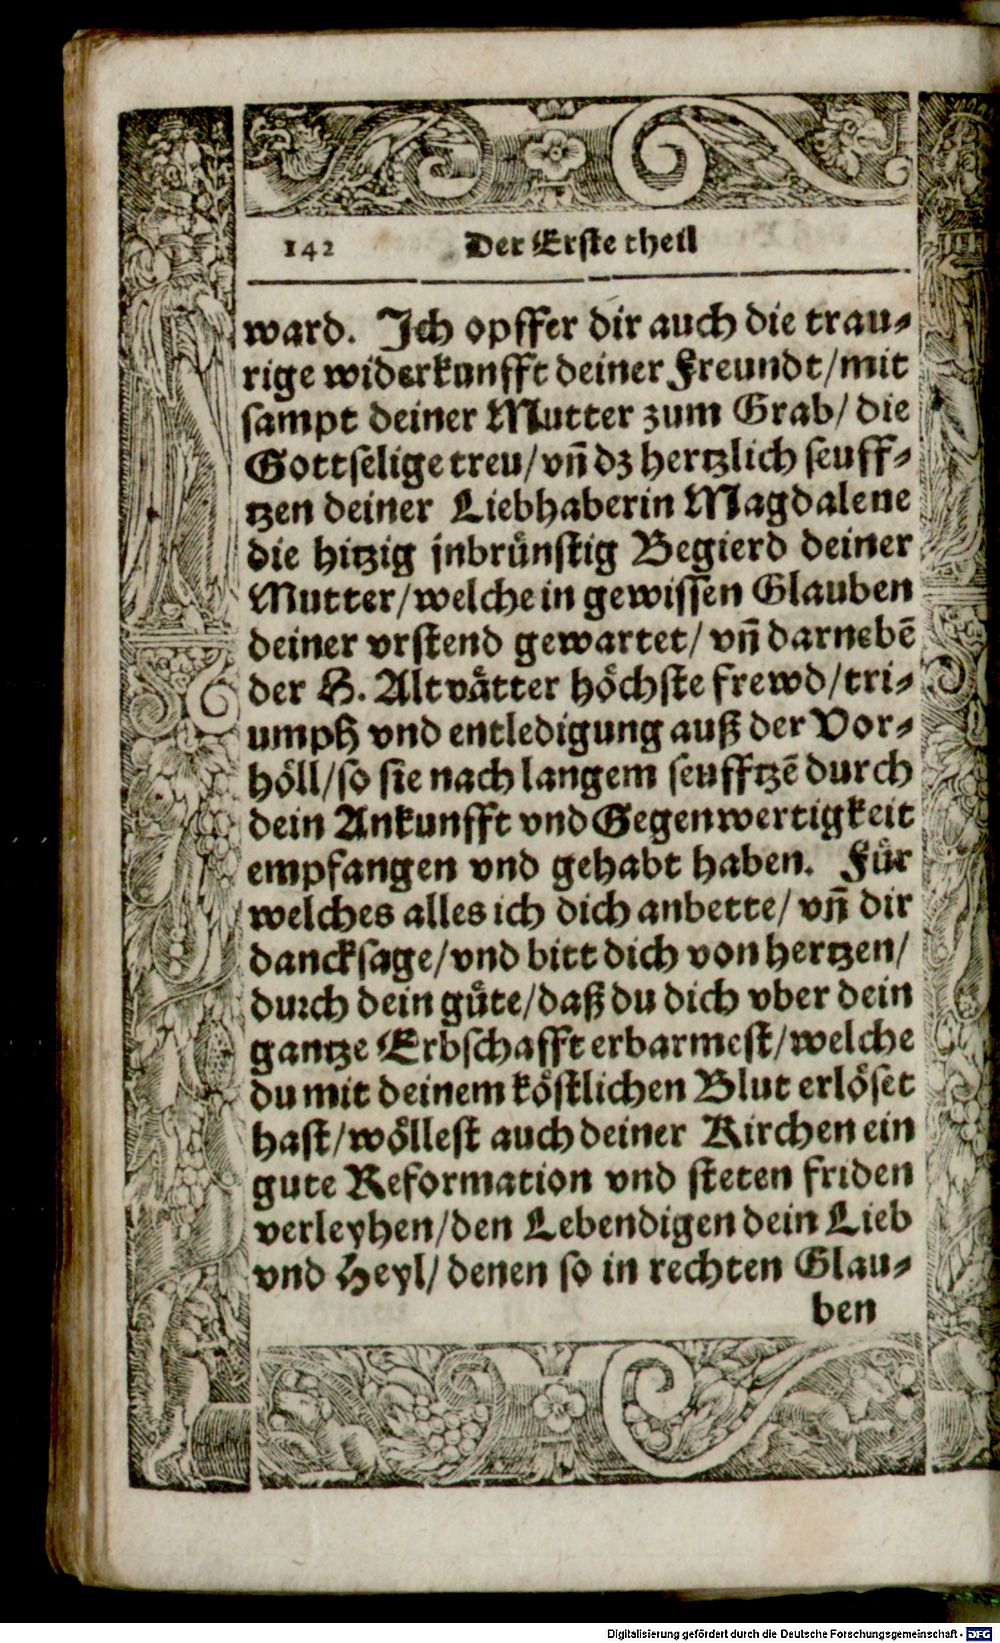 142 Der Erste theil
ward. Ich opffer dir auch die trau-
rige widerkunfft deiner Freundt/mit
sampt deiner Mutter zum Grab/ die
Gottselige treu/vñ dz hertzlich seuff-
tzen deiner Liebhaberin Magdalene
die hitzig jnbrůnstig Begierd deiner
Mutter/welche in gewissen Glauben
deiner vrstend gewartet/ vñ darnebẽ
der H. Altvätter höchste frewd/tri-
umph vnd entledigung auß der Vor-
höll/so sie nach langem seufftzẽ durch
dein Ankunfft vnd Gegenwertigkeit
empfangen vnd gehabt haben. Fůr
welches alles ich dich anbette/ vñ dir
dancksage/vnd bitt dich von hertzen/
durch dein gůte/daß du dich vber dein
gantze Erbschafft erbarmest/welche
du mit deinem köstlichen Blut erlöset
hast/wöllest auch deiner Kirchen ein
gute Reformation vnd steten friden
verleyhen/den Lebendigen dein Lieb
vnd Heyl/ denen so in rechten Glau-
ben
Digitalisierung gefördert durch die Deutsche Forschungsgemeinschaft - DFG